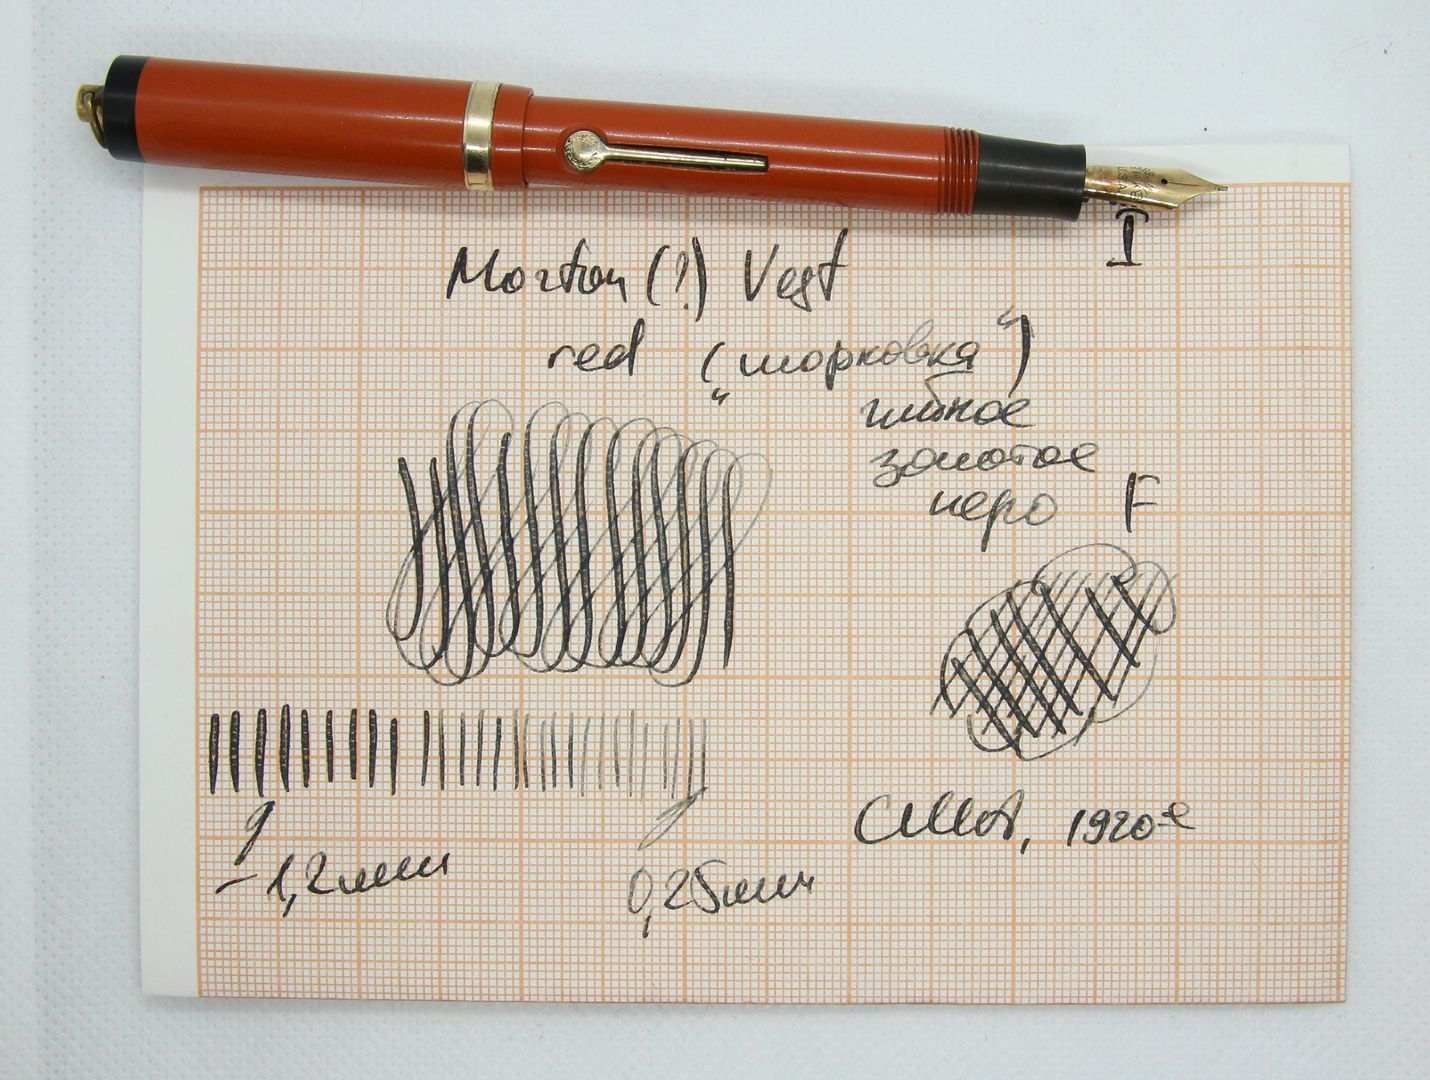 I
Morton (?) Vest
red ("морковка")
гибкое
золотое
перо F
США, 1920-е
~1,2мм
0,25мм